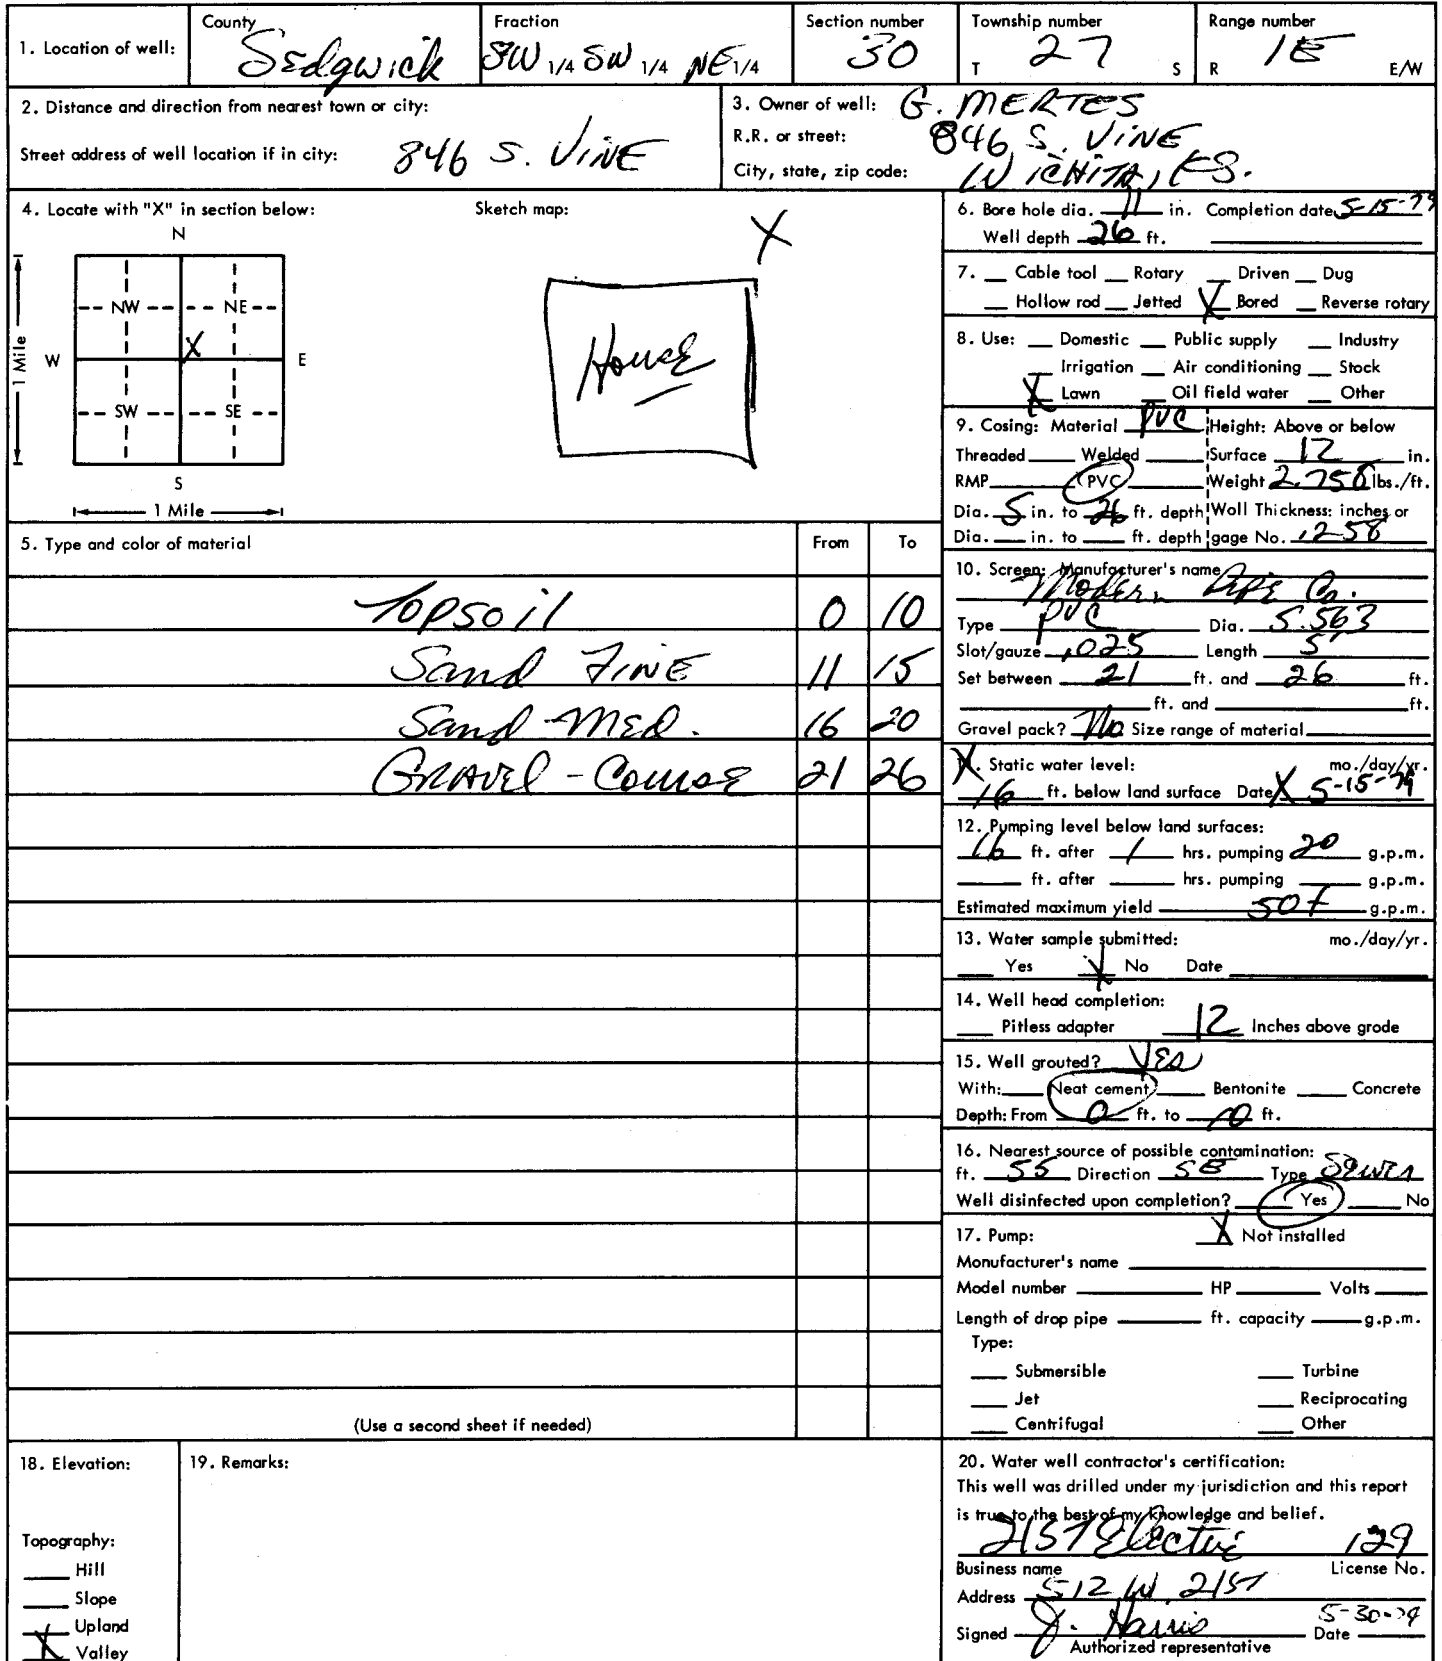 1. Location of well: County Sedgwick Fraction SW 1/4 SW 1/4 NE 1/4 Section number 30 Township number T 27 S Range number R 1E E/W
2. Distance and direction from nearest town or city:
Street address of well location if in city: 846 S. VINE
3. Owner of well: G. MERTES
R.R. or street: 846 S. VINE
City, state, zip code: WICHITA, KS.
4. Locate with "X" in section below: Sketch map:
N
X
NW NE
1 Mile W X E
House
SW SE
S
1 Mile
5. Type and color of material From To
Topsoil 0 10
Sand FINE 11 15
Sand-Med. 16 20
GRAVEL - Course 21 26
(Use a second sheet if needed)
6. Bore hole dia. 11 in. Completion date 5-15-79
Well depth 26 ft.
7. Cable tool Rotary Driven Dug
Hollow rod Jetted X Bored Reverse rotary
8. Use: Domestic Public supply Industry
Irrigation Air conditioning Stock
X Lawn Oil field water Other
9. Cosing: Material PVC Height: Above or below
Threaded Welded Surface 12 in.
RMP PVC Weight 2.758 lbs./ft.
Dia. 5 in. to 26 ft. depth Woll Thickness: inches or
Dia. in. to ft. depth gage No. .258
10. Screen: Manufacturer's name
Modern Pipe Co.
Type PVC Dia. 5.563
Slot/gauze .025 Length 5'
Set between 21 ft. and 26 ft.
ft. and ft.
Gravel pack? No Size range of material
X. Static water level: mo./day/yr.
16 ft. below land surface Date X 5-15-79
12. Pumping level below land surfaces:
16 ft. after 1 hrs. pumping 20 g.p.m.
ft. after hrs. pumping g.p.m.
Estimated maximum yield 50+ g.p.m.
13. Water sample submitted: mo./day/yr.
Yes X No Date
14. Well head completion:
Pitless adapter 12 Inches above grade
15. Well grouted? Yes
With: Neat cement Bentonite Concrete
Depth: From 0 ft. to 10 ft.
16. Nearest source of possible contamination:
ft. 55 Direction SE Type Sewer
Well disinfected upon completion? Yes No
17. Pump: X Not installed
Manufacturer's name
Model number HP Volts
Length of drop pipe ft. capacity g.p.m.
Type:
Submersible Turbine
Jet Reciprocating
Centrifugal Other
18. Elevation:
Topography:
Hill
Slope
Upland
X Valley
19. Remarks:
20. Water well contractor's certification:
This well was drilled under my jurisdiction and this report
is true to the best of my knowledge and belief.
21ST Electric 129
Business name License No.
Address 512 W. 21ST
Signed J. Harris Date 5-30-79
Authorized representative